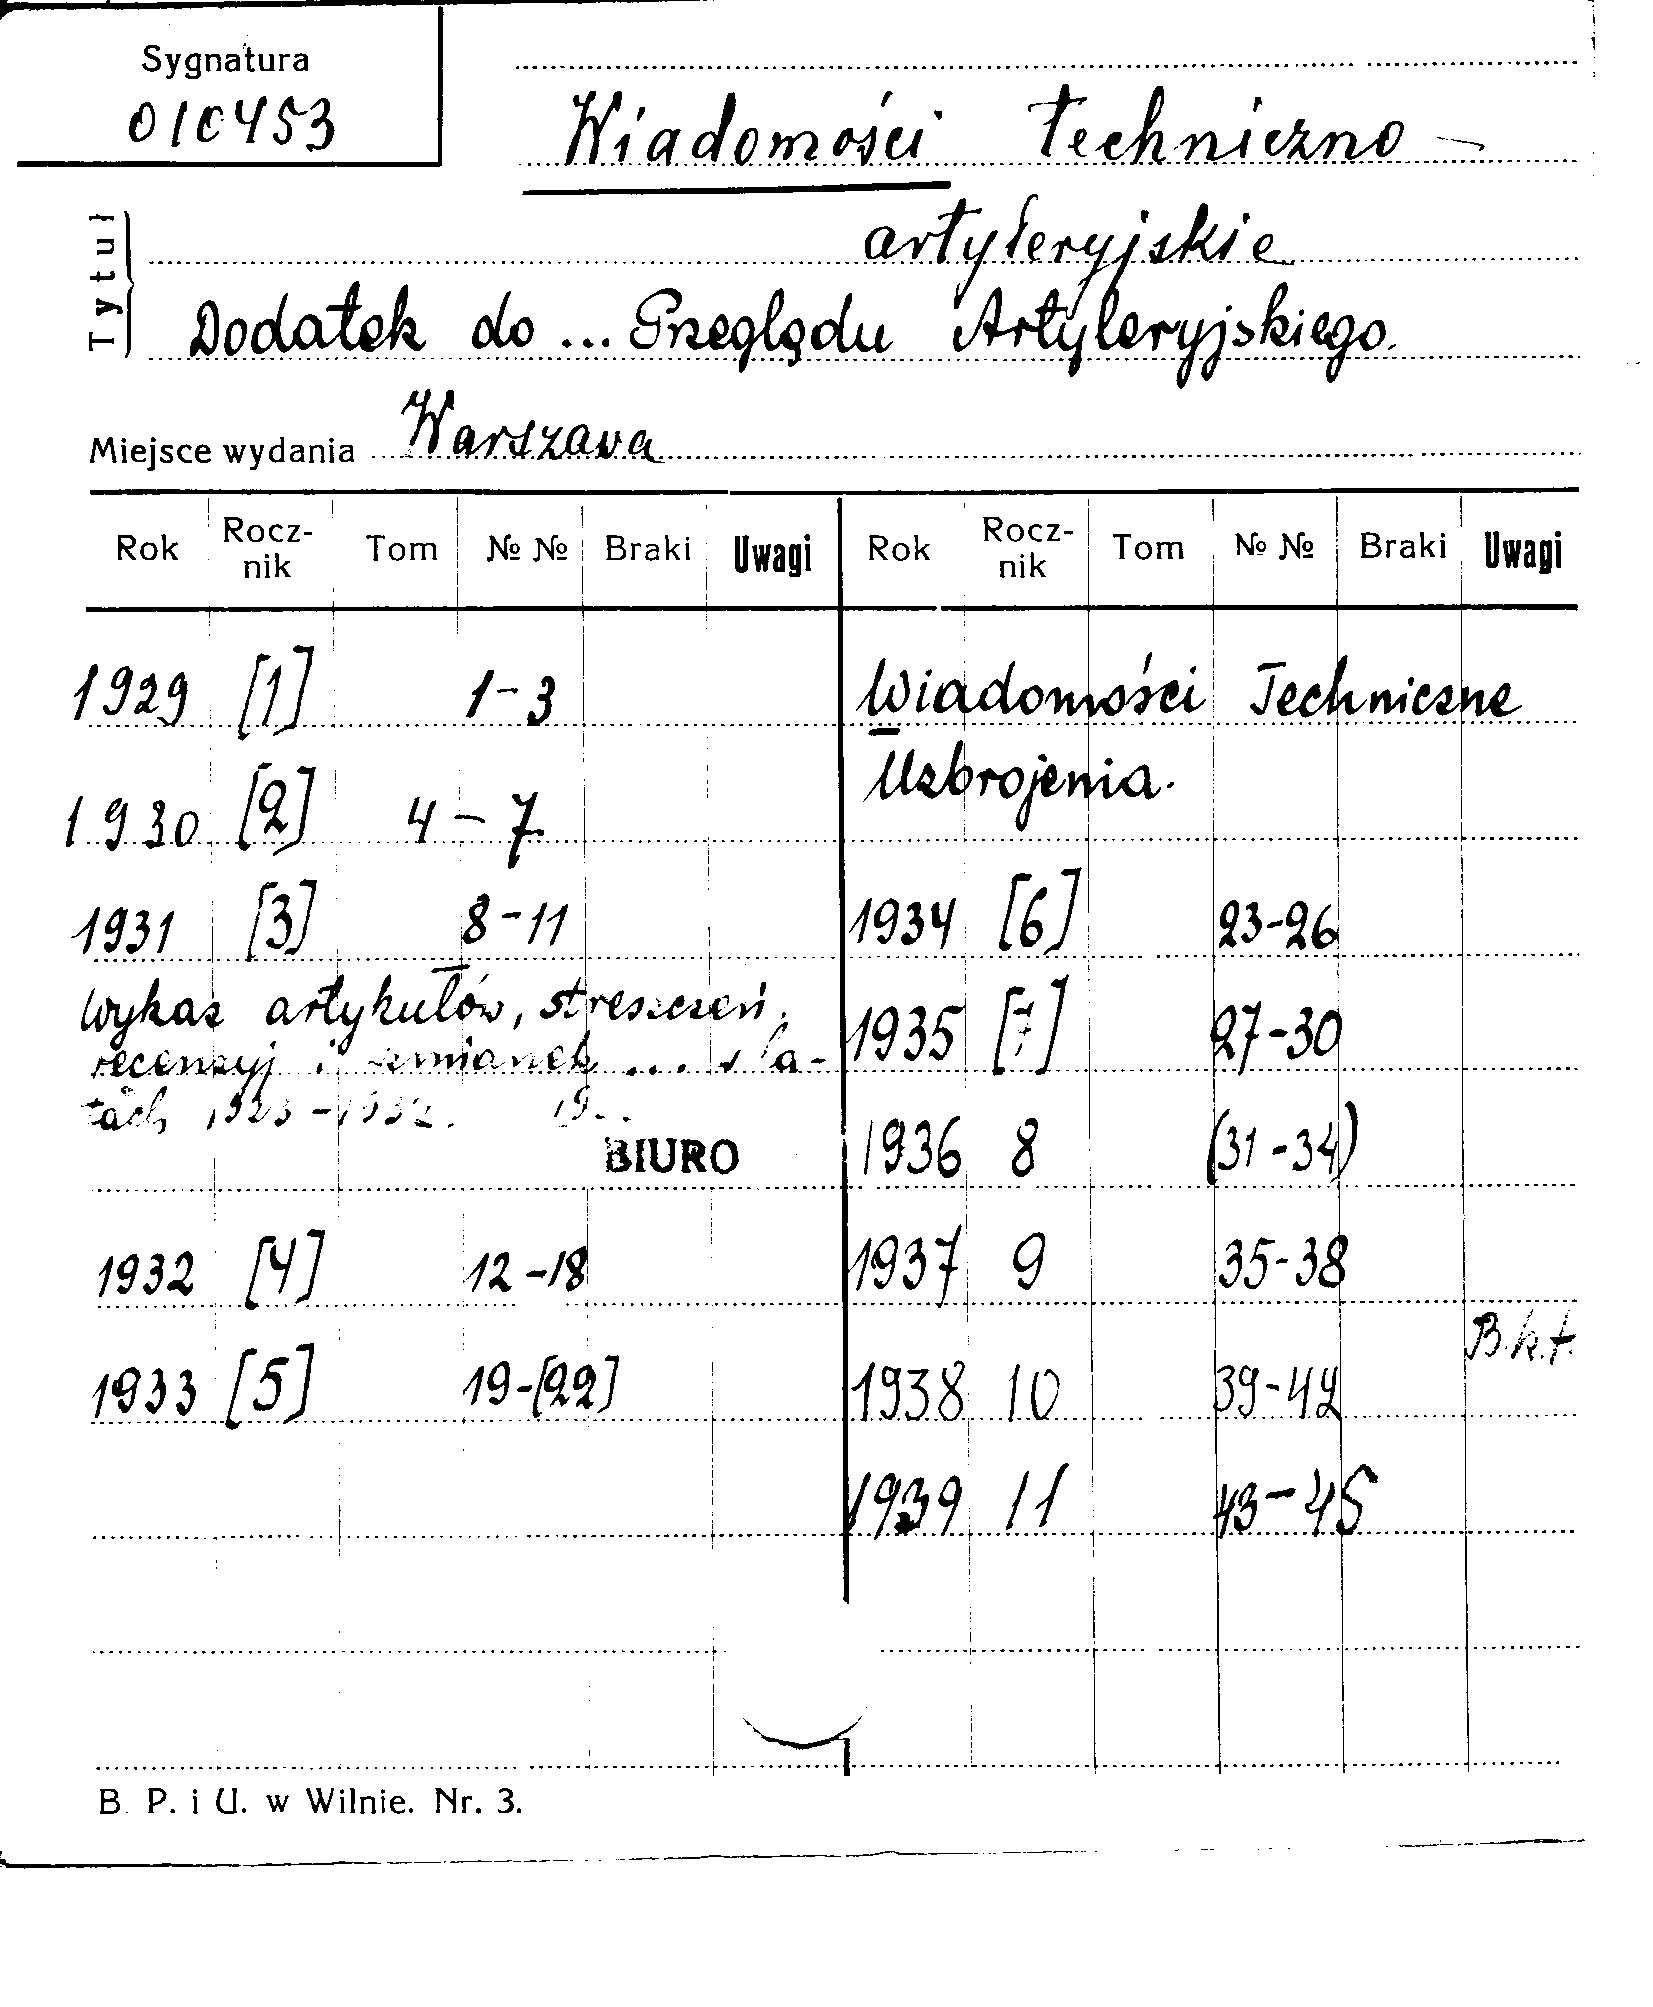 Sygnatura
010453
Wiadomości Techniczno-
artyleryjskie
Tytuł
Dodatek do ... Przeglądu Artyleryjskiego.
Miejsce wydania Warszawa
Rok Rocz-nik Tom №№ Braki Uwagi
1929 [1] 1-3
1930 [2] 4-7
1931 [3] 8-11
Wykaz artykułów, streszczeń,
recenzyj i wzmianek ... w la-
tach 1923-1932.
BIURO
1932 [4] 12-18
1933 [5] 19-[22]
Rok Rocz-nik Tom №№ Braki Uwagi
Wiadomości Techniczne
Uzbrojenia.
1934 [6] 23-26
1935 [7] 27-30
1936 8 (31-34)
1937 9 35-38
B.k.t.
1938 10 39-42
1939 11 43-45
B. P. i U. w Wilnie. Nr. 3.